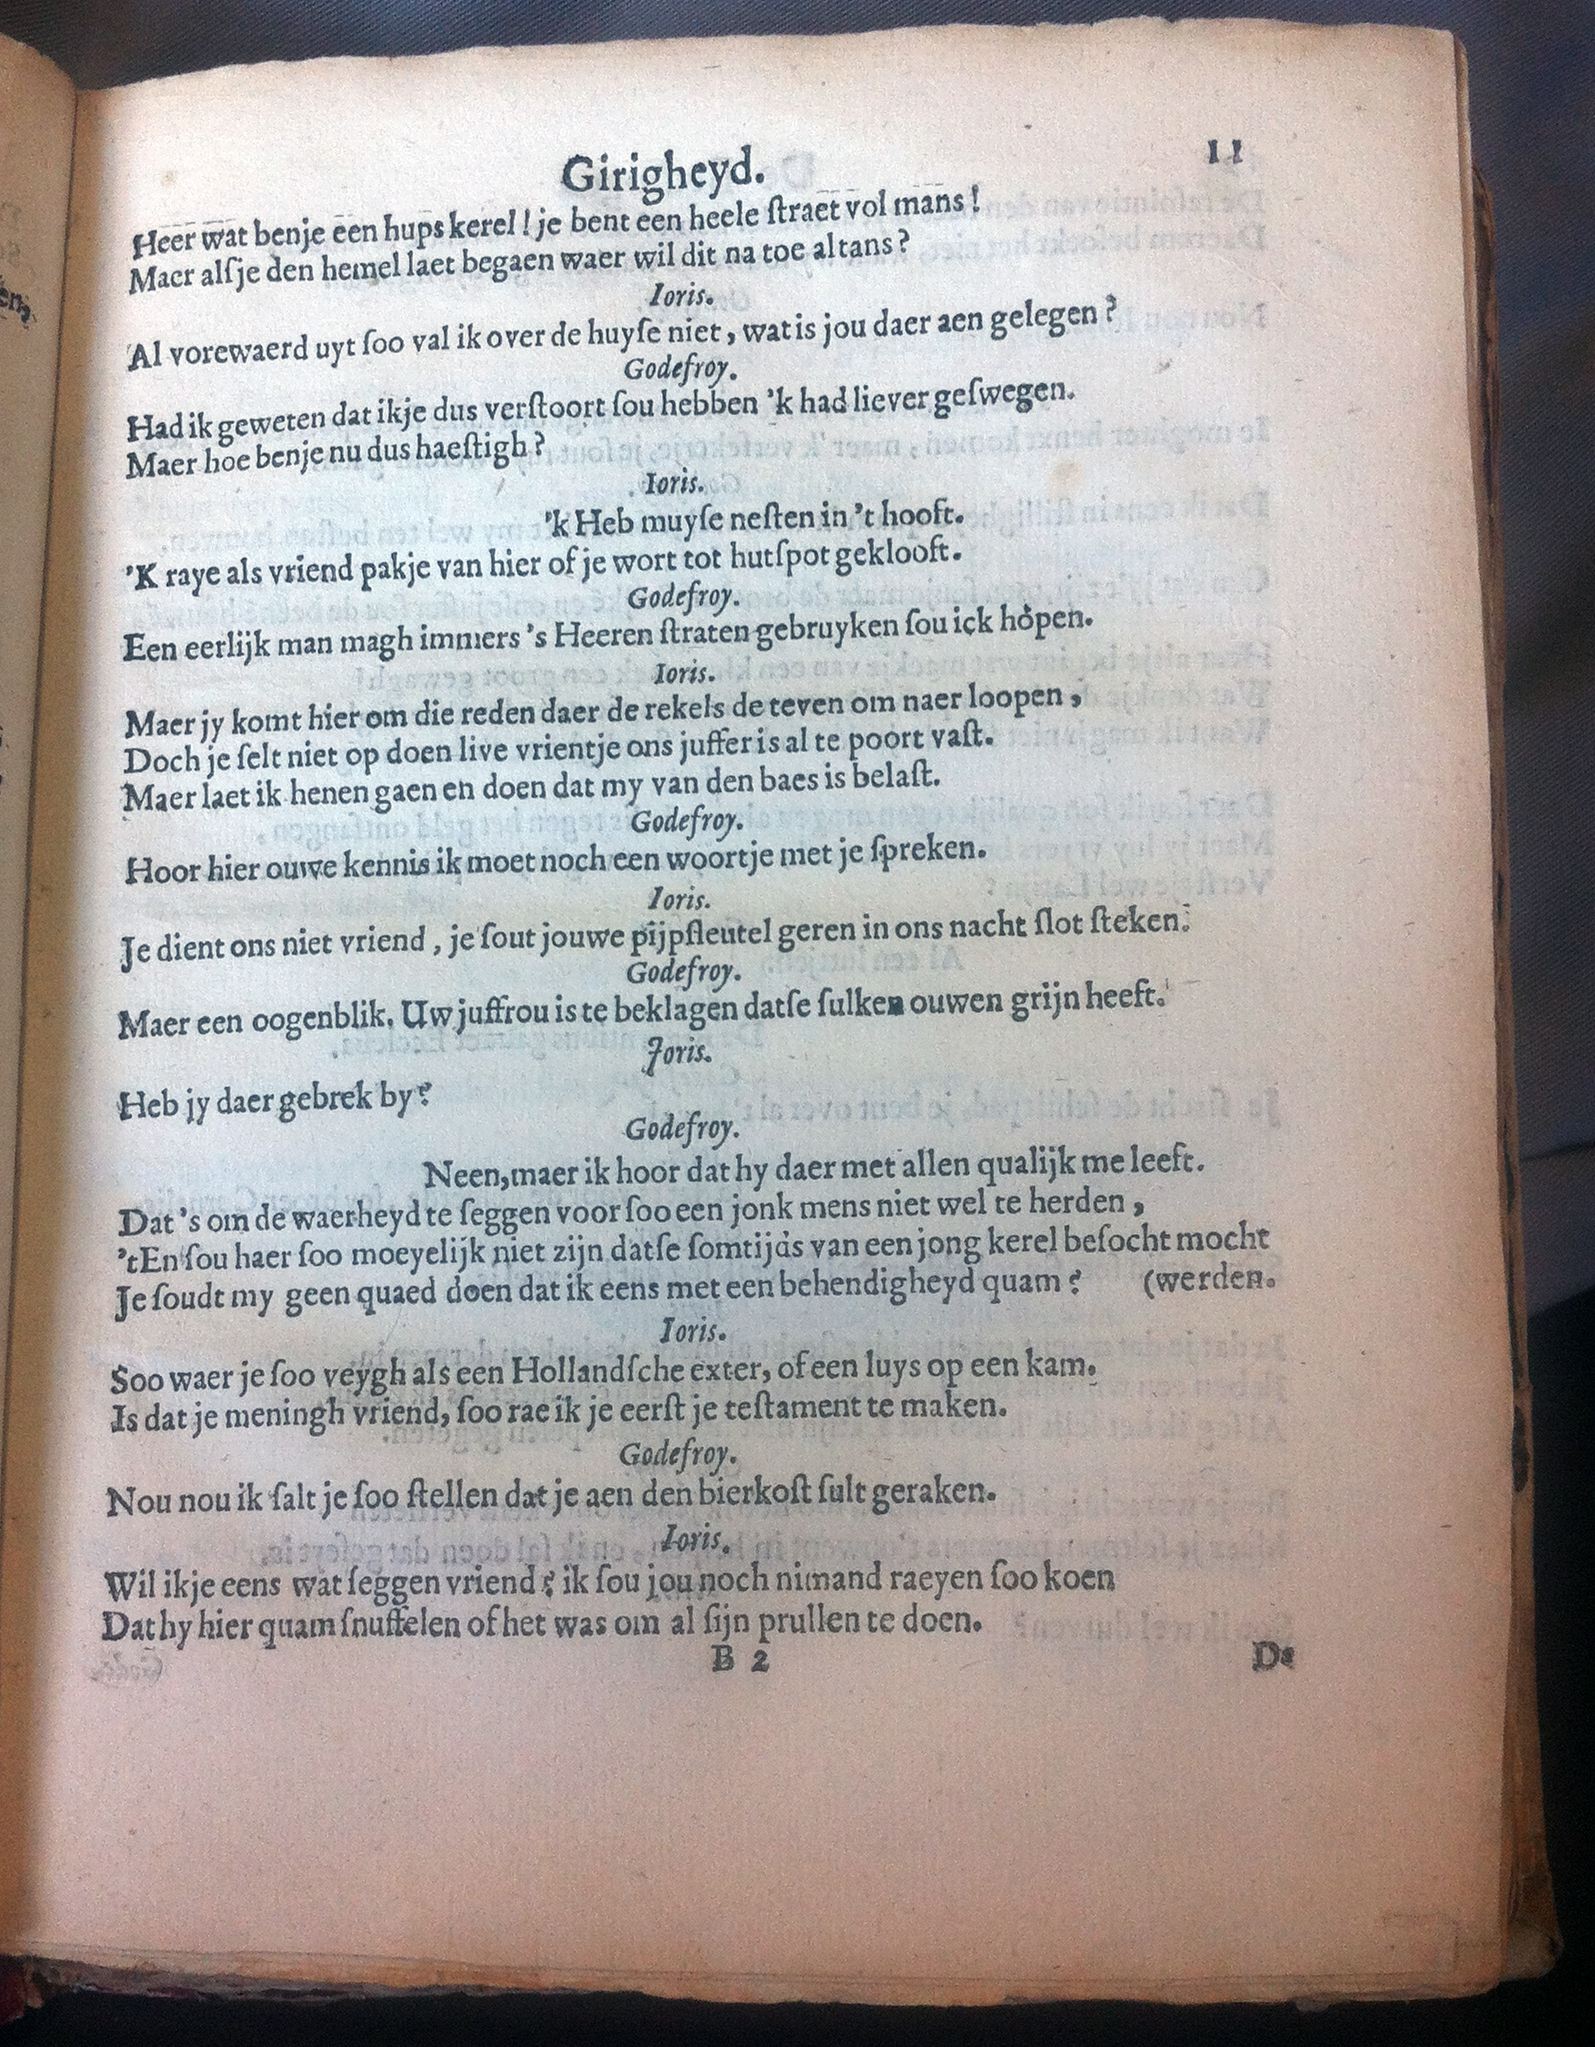 Girigheyd. 11
Heer wat benje een hups kerel! je bent een heele ſtraet vol mans!
Maer alſje den hemel laet begaen waer wil dit na toe altans?
Ioris.
Al vorewaerd uyt ſoo val ik over de huyſe niet, wat is jou daer aen gelegen?
Godefroy.
Had ik geweten dat ikje dus verſtoort ſou hebben 'k had liever geſwegen.
Maer hoe benje nu dus haeſtigh?
Ioris.
'k Heb muyſe neſten in 't hooft.
'K raye als vriend pakje van hier of je wort tot hutſpot geklooft.
Godefroy.
Een eerlijk man magh immers 's Heeren ſtraten gebruyken ſou ick hopen.
Ioris.
Maer jy komt hier om die reden daer de rekels de teven om naer loopen,
Doch je ſelt niet op doen live vrientje ons juffer is al te poort vaſt.
Maer laet ik henen gaen en doen dat my van den baes is belaſt.
Godefroy.
Hoor hier ouwe kennis ik moet noch een woortje met je ſpreken.
Ioris.
Je dient ons niet vriend, je ſout jouwe pijpſleutel geren in ons nacht ſlot ſteken.
Godefroy.
Maer een oogenblik. Uw juffrou is te beklagen datſe ſulken ouwen grijn heeft.
Joris.
Heb jy daer gebrek by?
Godefroy.
Neen, maer ik hoor dat hy daer met allen qualijk me leeft.
Dat 's om de waerheyd te ſeggen voor ſoo een jonk mens niet wel te herden,
'tEn ſou haer ſoo moeyelijk niet zijn datſe ſomtijds van een jong kerel beſocht mocht
Je ſoudt my geen quaed doen dat ik eens met een behendigheyd quam? (werden.
Ioris.
Soo waer je ſoo veygh als een Hollandſche exter, of een luys op een kam.
Is dat je meningh vriend, ſoo rae ik je eerſt je teſtament te maken.
Godefroy.
Nou nou ik ſalt je ſoo ſtellen dat je aen den bierkoſt ſult geraken.
Ioris.
Wil ikje eens wat ſeggen vriend? ik ſou jou noch nimand raeyen ſoo koen
Dat hy hier quam ſnuffelen of het was om al ſijn prullen te doen.
B 2 De